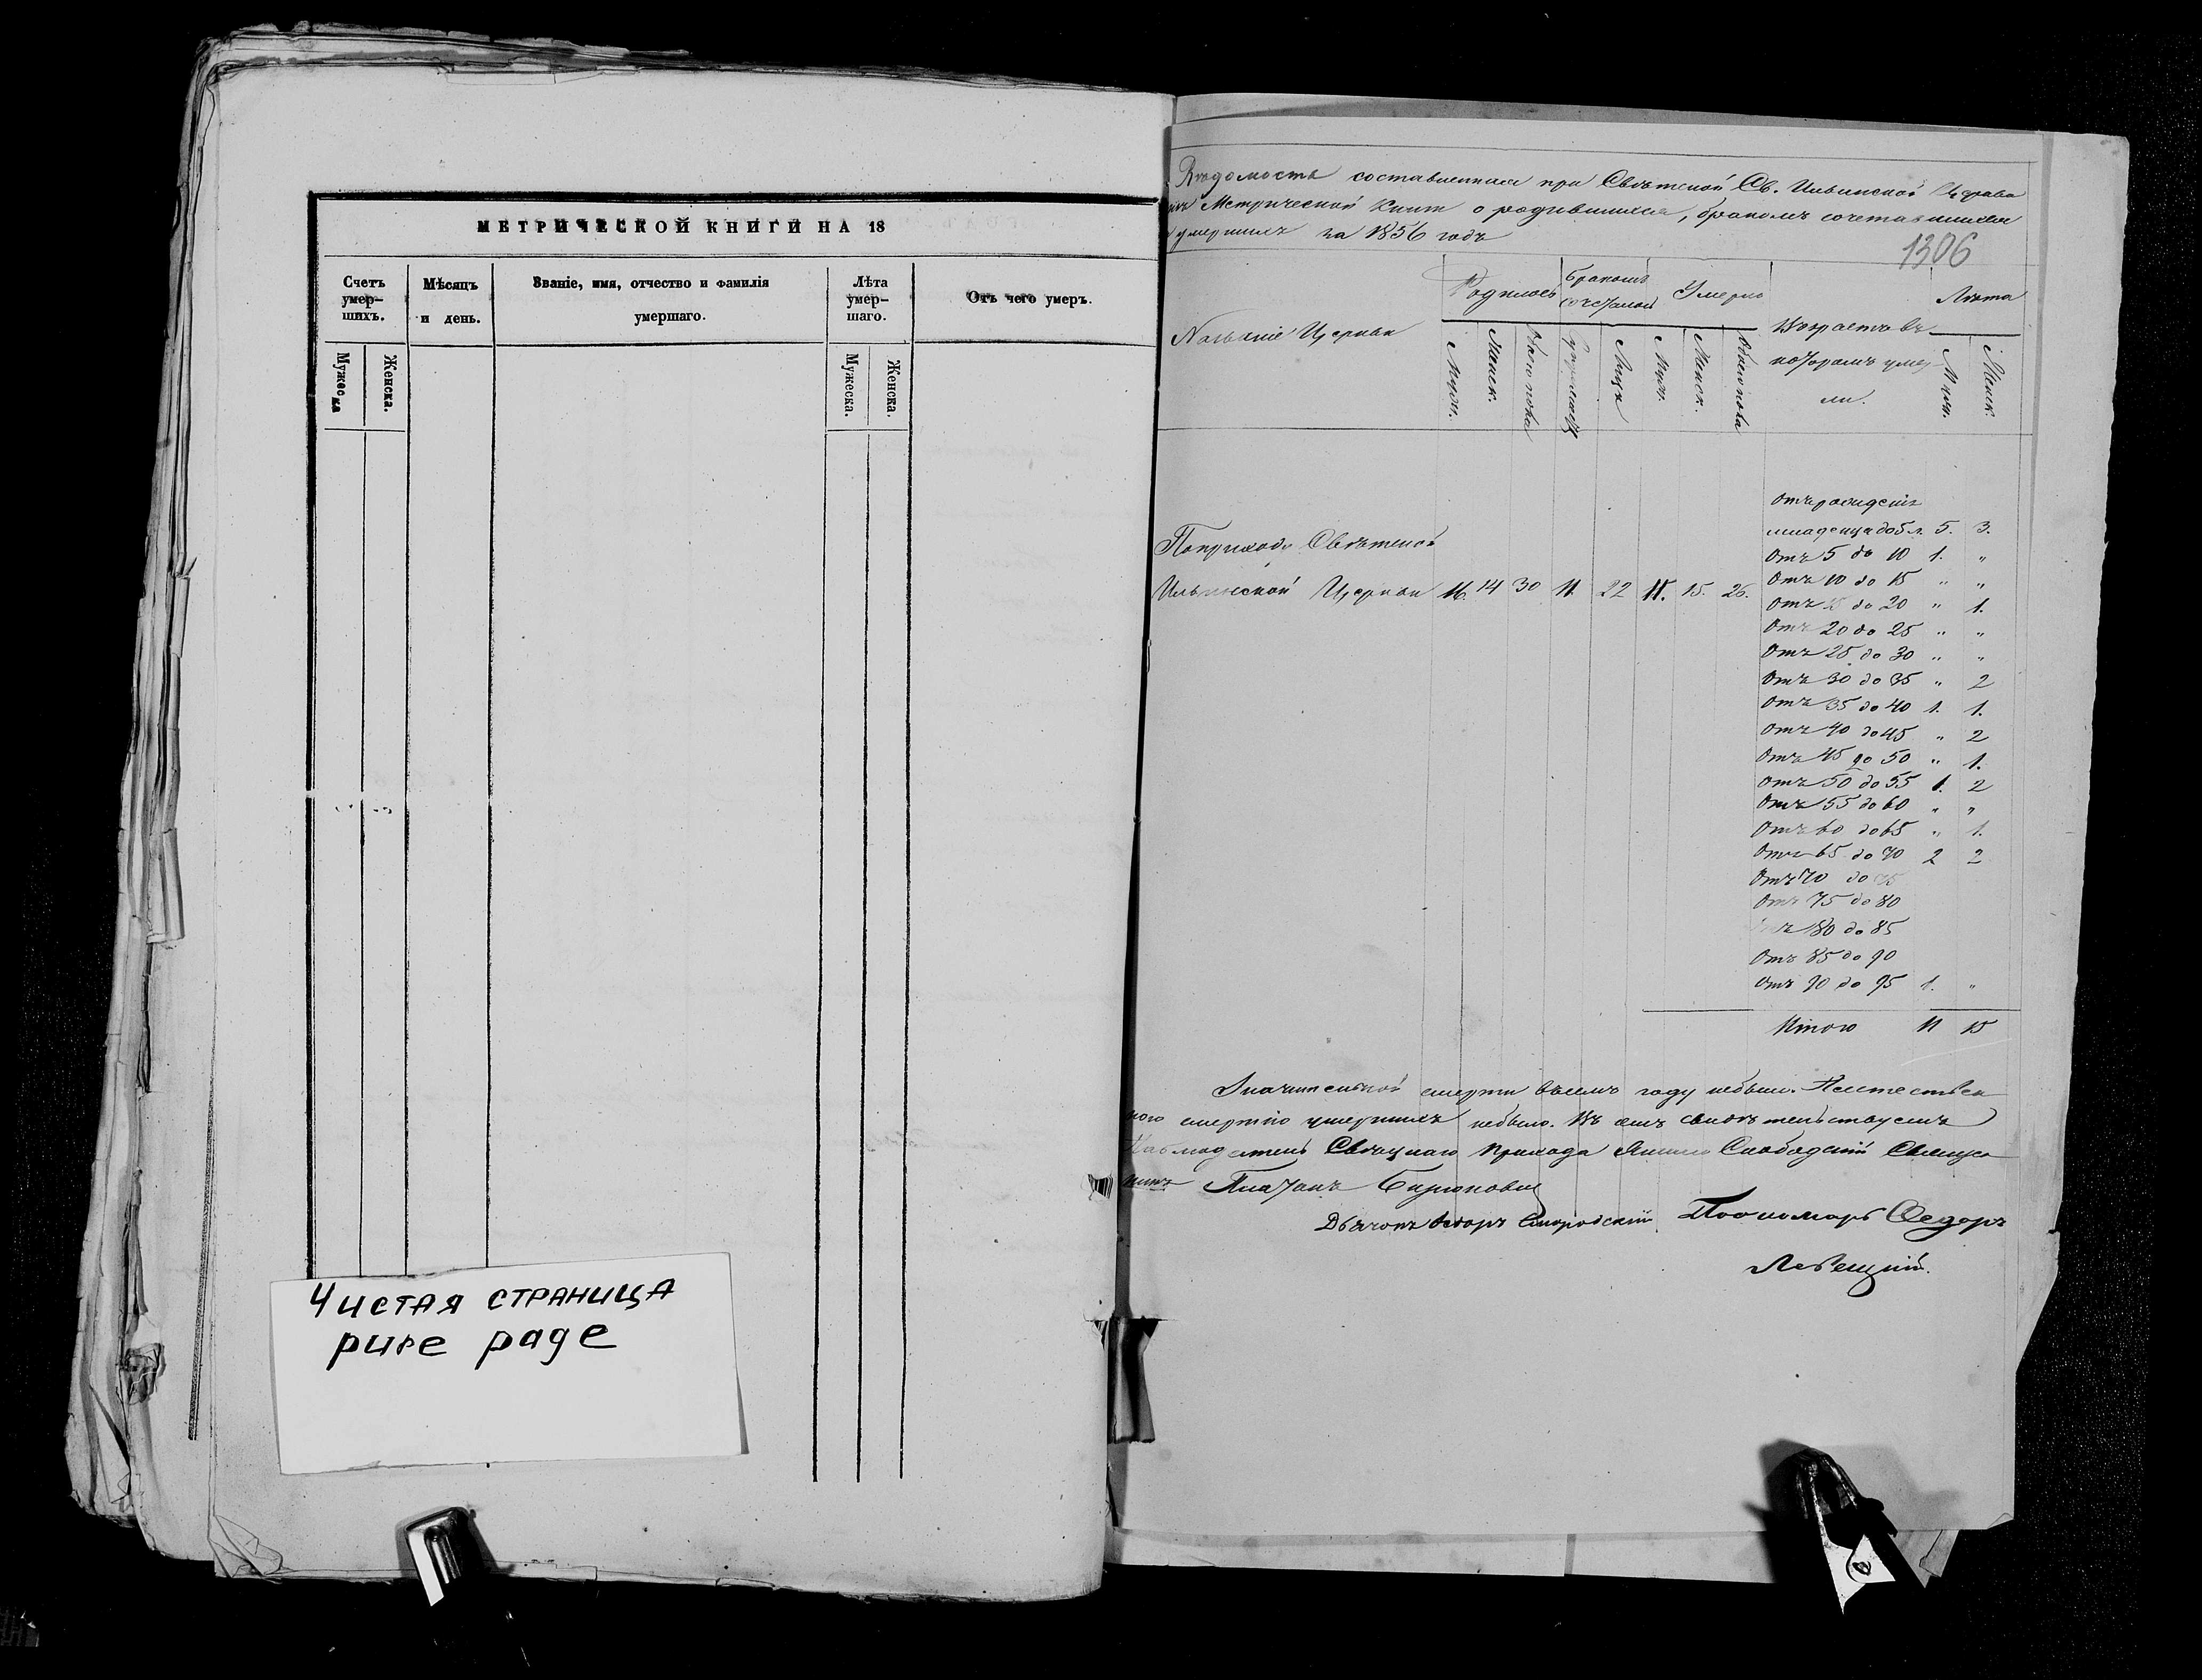 МЕТРИЧЕСКОЙ КНИГИ НА 18
Счетъ умер-шихъ.
Мѣсяцъ и день.
Званіе, имя, отчество и фамилія умершаго.
Лѣта умер-шаго.
Отъ чего умеръ.
Мужеска
Женска.
Мужеска.
Женска.
Чистая страница
pure page
Вѣдомость составленная при Святской Св. Ильинской Церкви
Метрической Книги о родившихся, бракомъ сочетавшихся
умершихъ за 1856 годъ
1306
Названіе Церкви
Родилось
бракомъ
Умерло
Возрастъ въ
которомъ умер-
ли.
Лѣта
Муж.
Женск.
Обоего пола
Лица
Муж.
Женск.
Обоего пола
Муж.
Женск.
Отъ рожденія
младенца до 5 л. 5. 3.
Отъ 5 до 10 1. "
Отъ 10 до 15 " "
Отъ 15 до 20 " 1.
Отъ 20 до 25 " "
Отъ 25 до 30 " "
Отъ 30 до 35 " 2
Отъ 35 до 40 1. 1.
Отъ 40 до 45 " 2
Отъ 45 до 50 " 1.
Отъ 50 до 55 1. 2
Отъ 55 до 60 " "
Отъ 60 до 65 " 1.
Отъ 65 до 70 2 2
Отъ 70 до 75
Отъ 75 до 80
80 до 85
Отъ 85 до 90
Отъ 90 до 95 1. "
Итого 11 15
По приходу
Ильинской Церкви 16. 14 30 11. 22 11. 15. 26.
смерти въ семъ году небыло.
смертію умершихъ небыло. Въ семъ свидѣтельствуемъ
Прихода Слободскій Священ
никъ Платонъ
Дьячокъ Пономарь Федоръ